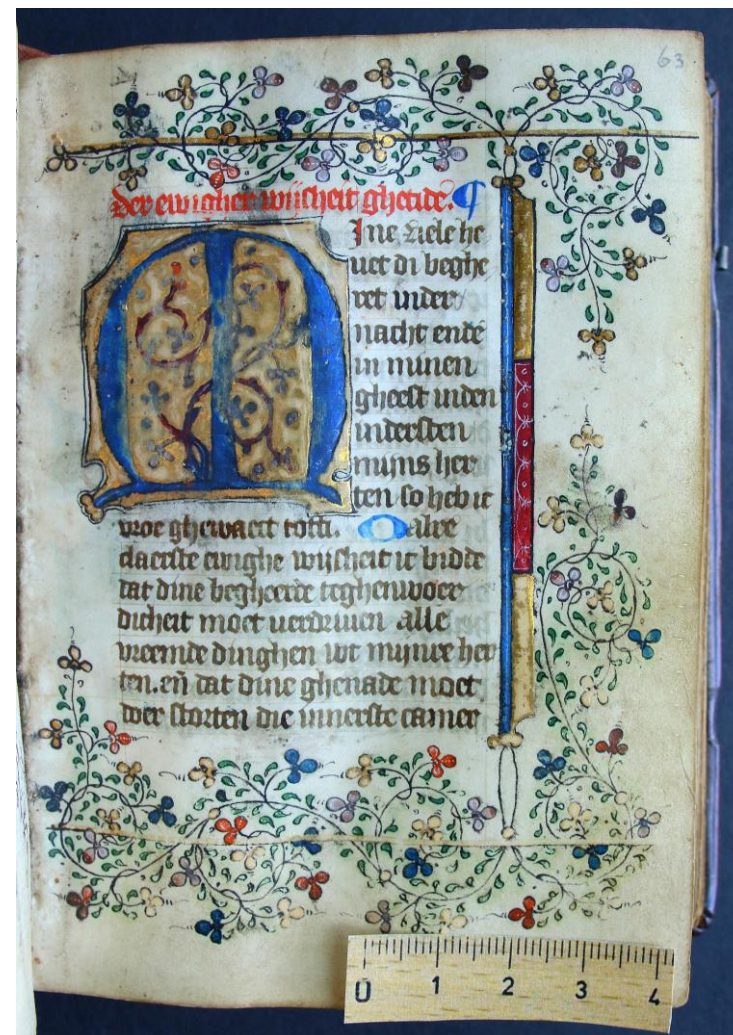 63
der ewigher wijsheit ghetide. ¶
Mine ziele he
uet di beghe
ret inder
nacht ende
in minen
gheest inden
indersten
mijns her
ten so heb ic
vroe ghewaect totti. O alre
claerste ewighe wijsheit ic bidde
dat dine begheerde ieghenwoer
dicheit moet uerdriuen alle
vreemde dinghen wt mijnre her
ten. en̄ dat dine ghenade moet
doer storten die innerste camer
0 1 2 3 4